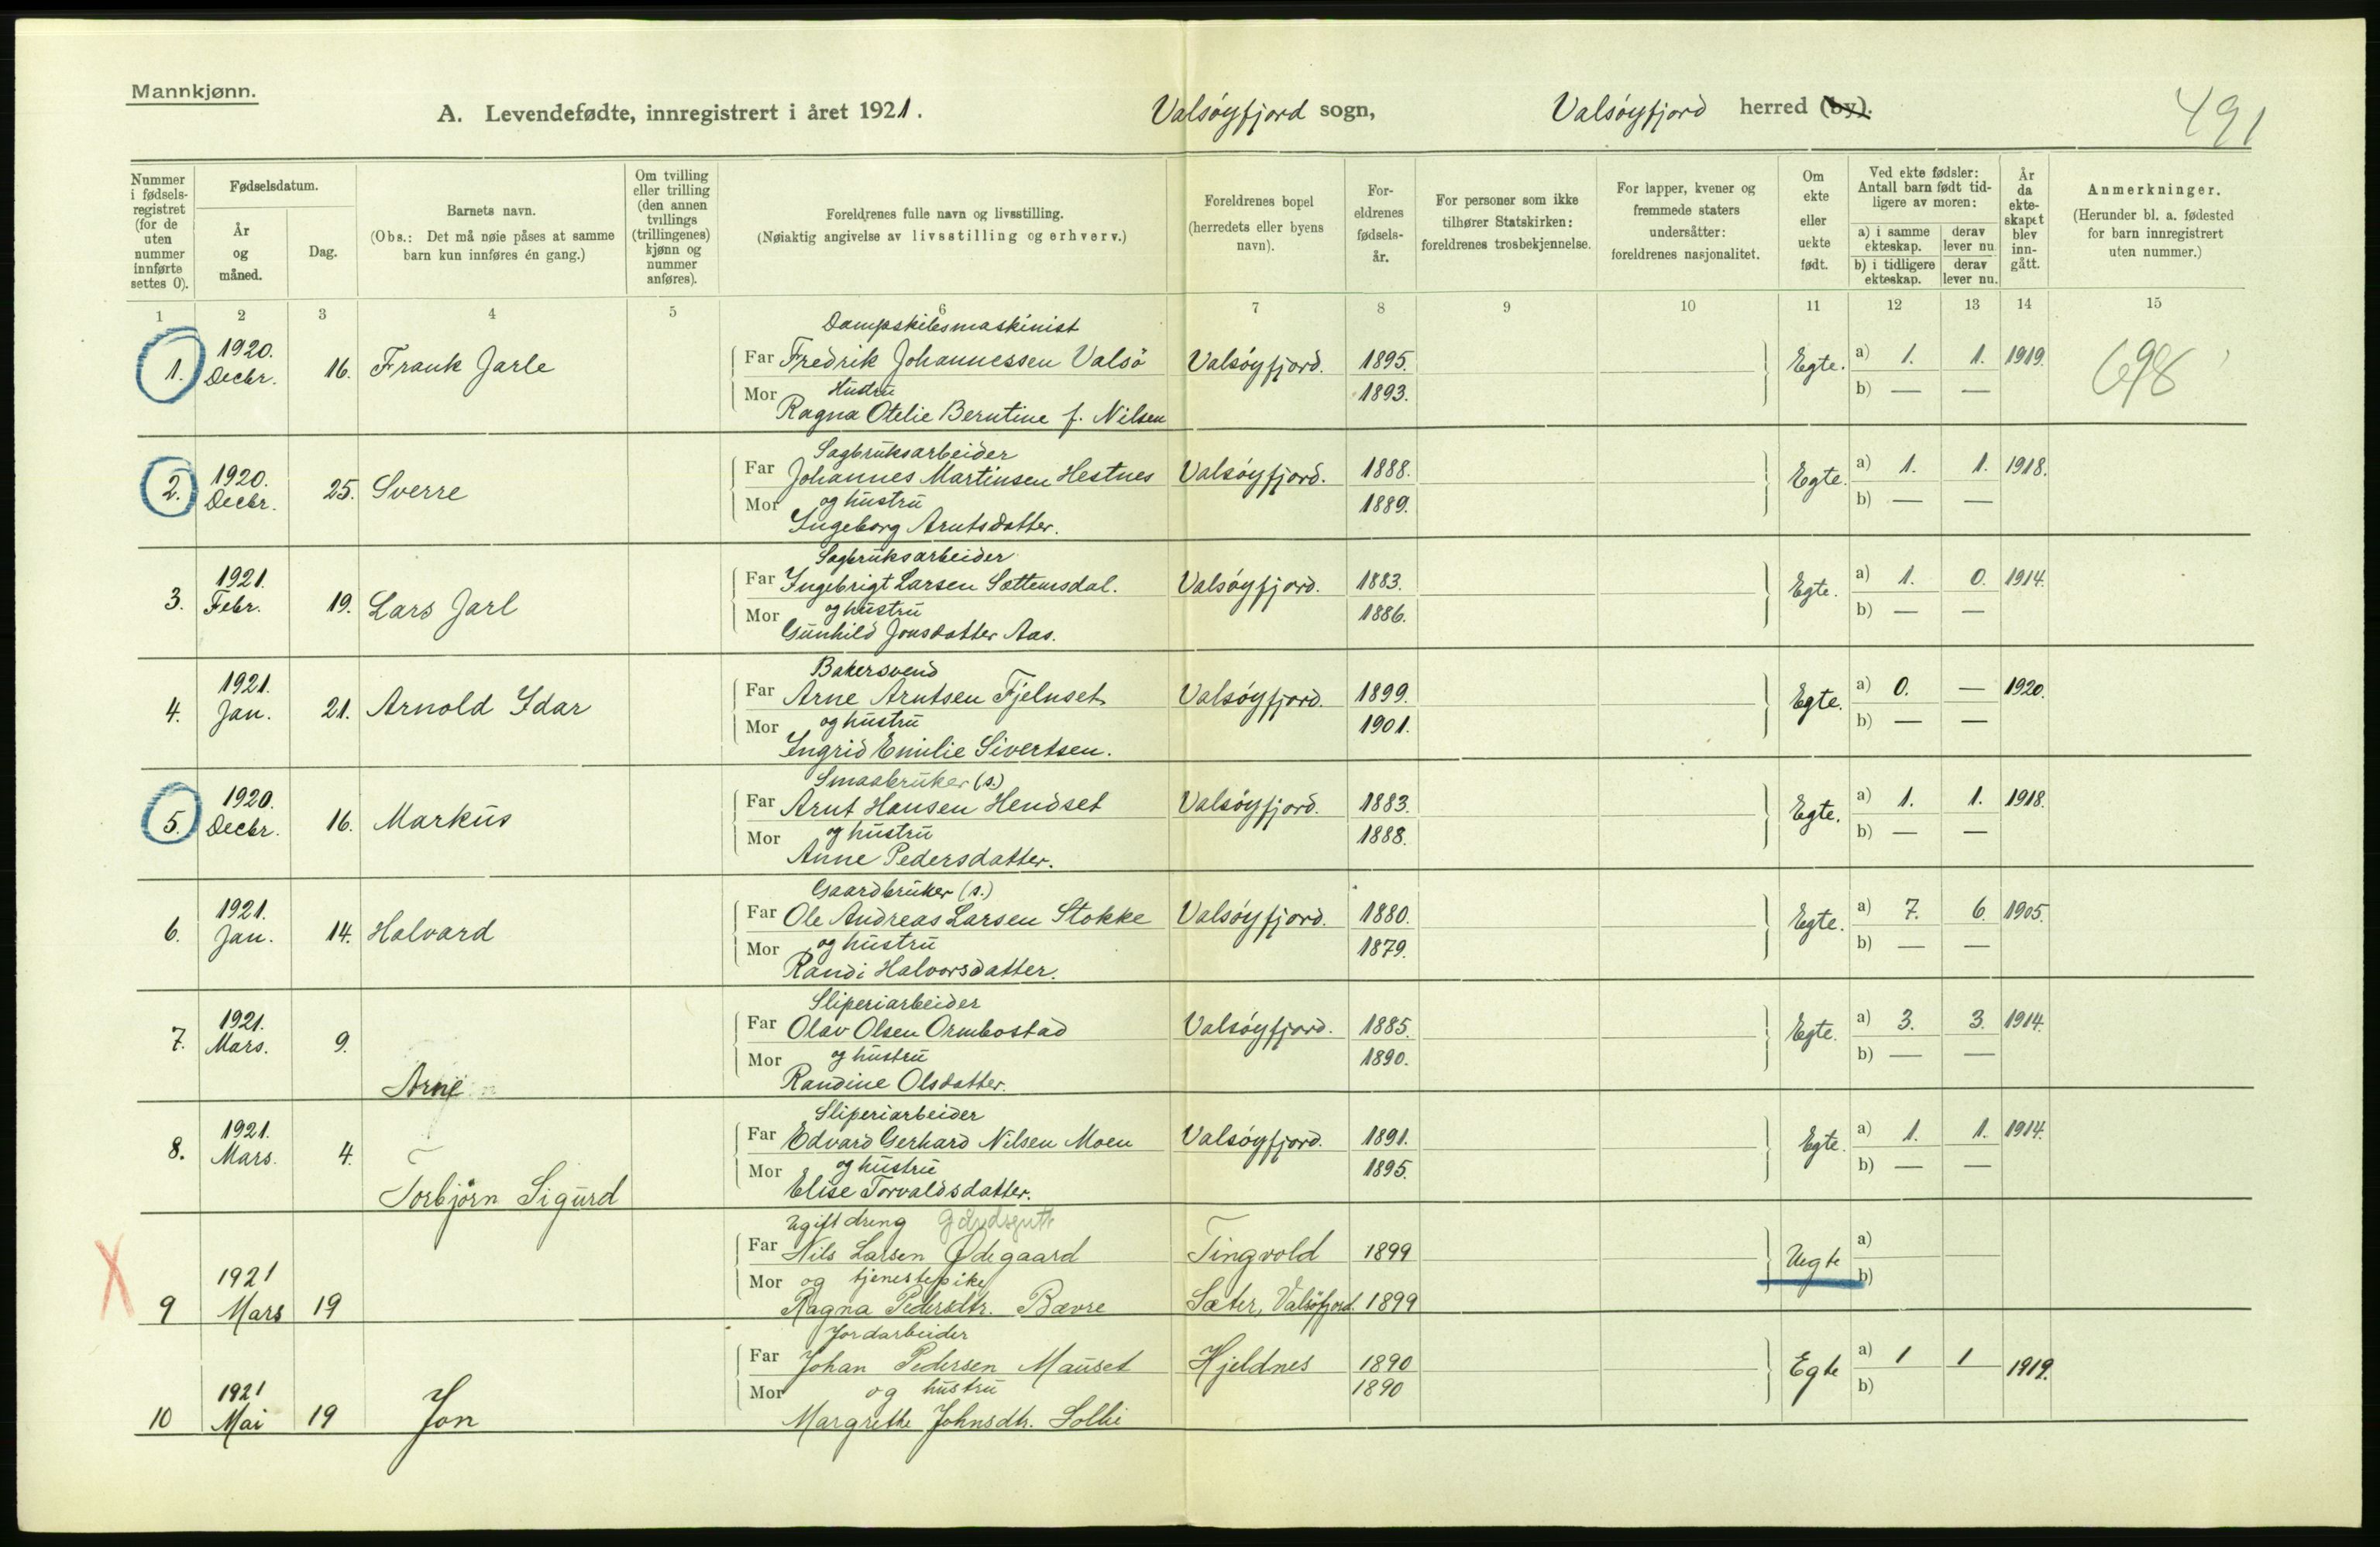 Mannkjønn.
A. Levendefødte, innregistrert i året 1921. Valsöyfjord sogn, Valsöyfjord herred (by). 491
Nummer i fødselsregistret (for de uten nummer innførte settes 0).
Fødselsdatum.
År og måned.
Dag.
Barnets navn.
(Obs.: Det må nøie påses at samme barn kun innføres én gang.)
Om tvilling eller trilling (den annen tvillings (trillingenes) kjønn og nummer anføres).
Foreldrenes fulle navn og livsstilling.
(Nøiaktig angivelse av livsstilling og erhverv.)
Foreldrenes bopel (herredets eller byens navn).
Foreldrenes fødselsår.
For personer som ikke tilhører Statskirken: foreldrenes trosbekjennelse.
For lapper, kvener og fremmede staters undersåtter: foreldrenes nasjonalitet.
Om ekte eller uekte født.
Ved ekte fødsler: Antall barn født tidligere av moren:
a) i samme ekteskap. derav lever nu
b) i tidligere ekteskap. derav lever nu.
År da ekteskapet blev inngått.
Anmerkninger.
(Herunder bl. a. fødested for barn innregistrert uten nummer.)
1 2 3 4 5 6 7 8 9 10 11 12 13 14 15
Dampskibsmaskinist
1. 1920. Decbr. 16. Frank Jarle Far Fredrik Johannessen Valsö Valsöyfjord. 1895. Egte. a) 1. 1. 1919. 698
Mor Hustru 1893. b) — —
Ragna Otelie Berntine f. Nilsen
Sagbruksarbeider
2. 1920. Decbr. 25. Sverre Far Johannes Martinsen Hestnes Valsöyfjord. 1888. Egte. a) 1. 1. 1918.
Mor og hustru 1889. b) — —
Ingeborg Arntsdatter.
Sagbruksarbeider
3. 1921. Febr. 19. Lars Jarl Far Ingebrigt Larsen Sættemsdal. Valsöyfjord. 1883. Egte. a) 1. 0. 1914.
Mor og hustru 1886. b) — —
Gunhild Jonsdatter Aas.
Bakersvend
4. 1921. Jan. 21. Arnold Idar Far Arne Arntsen Fjelnset Valsöyfjord. 1899. Egte. a) 0. — 1920.
Mor og hustru 1901. b) — —
Ingrid Emilie Sivertsen.
Smaabruker (s.)
5. 1920. Decbr. 16. Markus Far Arnt Hansen Hendset Valsöyfjord. 1883. Egte. a) 1. 1. 1918.
Mor og hustru 1888. b) — —
Anne Pedersdatter.
Gaardbruker (s.)
6. 1921. Jan. 14. Halvard Far Ole Andreas Larsen Stokke Valsöyfjord. 1880. Egte. a) 7. 6. 1905.
Mor og hustru 1879. b) — —
Randi Halvorsdatter.
Sliperiarbeider
7. 1921. Mars. 9. Arne Far Olav Olsen Ormbostad Valsöyfjord. 1885. Egte. a) 3. 3. 1914.
Mor og hustru 1890. b) — —
Randine Olsdatter.
Sliperiarbeider
8. 1921. Mars. 4. Torbjörn Sigurd Far Edvard Gerhard Nilsen Moen Valsöyfjord. 1891. Egte. a) 1. 1. 1914.
Mor og hustru 1895. b) — —
Elise Torvaldsdatter.
Ugift dreng
X 9 1921 Mars 19 Far Nils Larsen Ødegaard Tingvold 1899 Uegte a)
Mor og tjenestepike b)
Ragna Pedersdtr. Bævre Sæter, Valsöfjord. 1899
Jordarbeider
10 1921 Mai 19 Jon Far Johan Pedersen Mauset Hjeldnes 1890 Egte a) 1 1 1919.
Mor og hustru 1890 b)
Margrethe Johnsdtr. Sollie